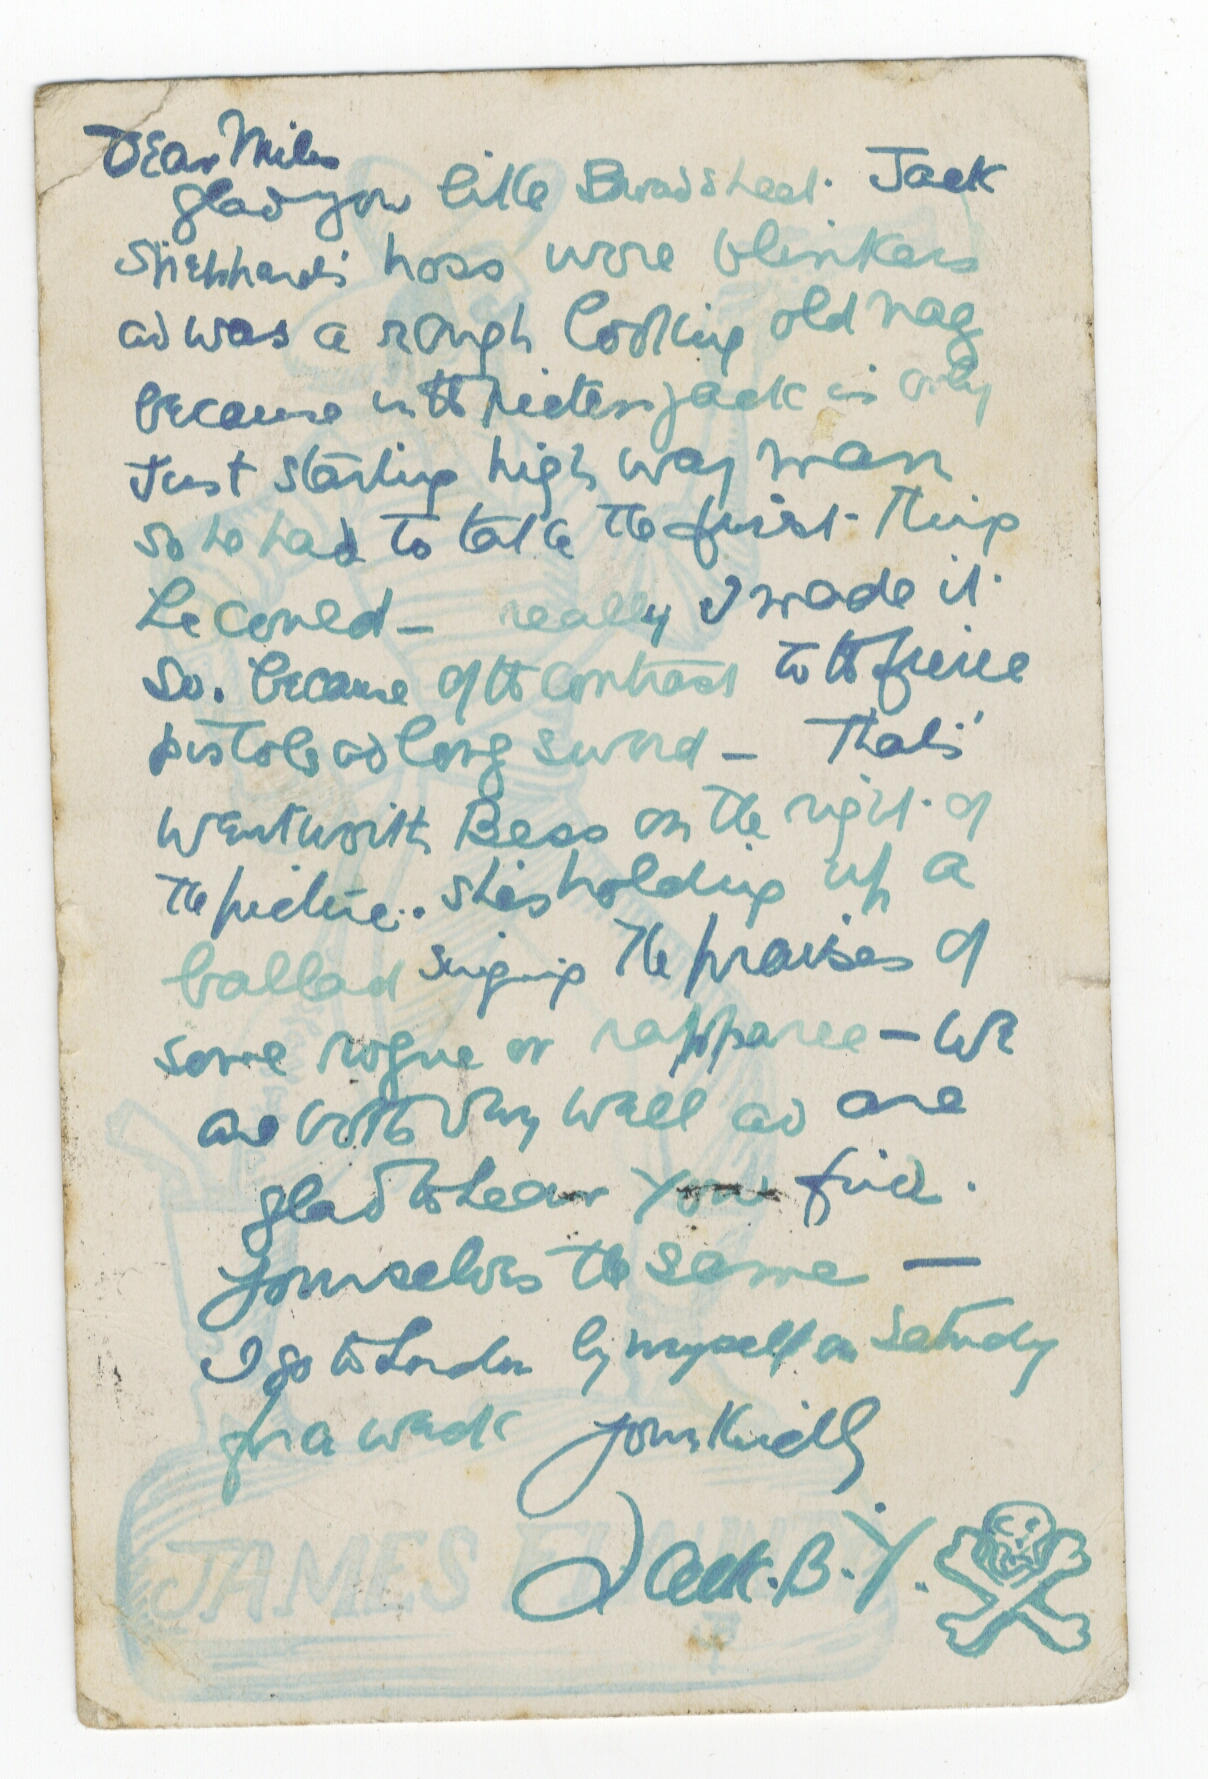 Dear Miles
glad you like Broadsheet. Jack
Shephard's hoss wore blinkers
ad was a rough looking old nag
because in the picture Jack is only
Just starting high way man
so he had to take the first thing
he could — really I made it
so. because of the contrast to the fierce
pistols ad long sword — That's
Wentworth Bess on the right of
the picture.. She's holding up a
ballad singing the praises of
some rogue or rapparee — We
are both very well ad are
glad to hear you find.
yourselves the same —
I go to London by myself on Saturday
for a week Yours Kindly
Jack. B. Y.
JAMES FLAUNTY